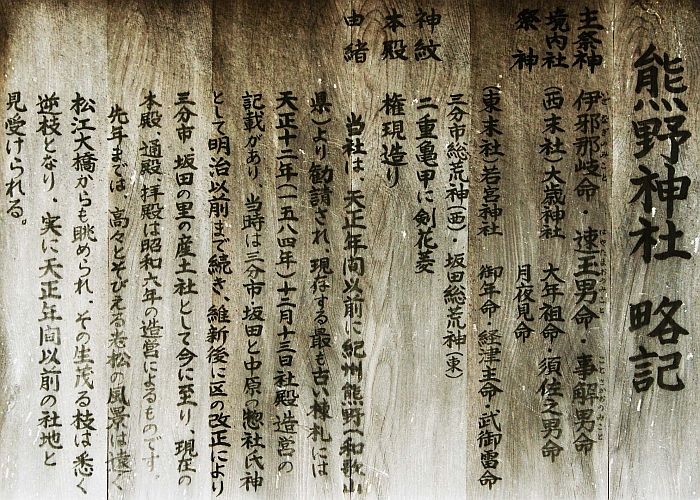 熊野神社 略記
主祭神 伊邪那岐命・速玉男命・事解男命
境内社 (西末社)大歳神社 大年祖命 須佐之男命
祭神 月夜見命
(東末社)若宮神社 御年命・経津主命・武御雷命
三分市総荒神(西)・坂田総荒神(東)
神紋 二重亀甲に剣花菱
本殿 権現造り
由緒 当社は、天正年間以前に紀州熊野(和歌山
県)より勧請され、現存する最も古い棟札には
天正十二年(一五八四年)十二月十三日社殿造営の
記載があり、当時は三分市・坂田と中原の惣社氏神
として明治以前まで続き、維新後に区の改正により
三分市、坂田の里の産土社として今に至り、現在の
本殿、通殿、拝殿は昭和六年の造営によるものです。
先年までは、高々とそびえる老松の風景は遠く
松江大橋からも眺められ、その生茂る枝は悉く
逆枝となり、実に天正年間以前の社地と
見受けられる。